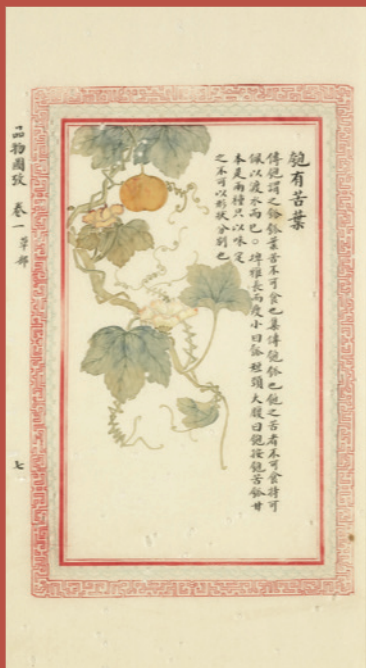 匏有苦葉
傳匏謂之瓠瓠葉苦不可食也集傳匏瓠也匏之苦者不可食特可
佩以渡水而已○埤雅長而瘦小曰瓠短頸大腹曰匏按匏苦瓠甘
本是兩種只以味定
之不可以形狀分別也
品物圖攷 卷一 草部
七